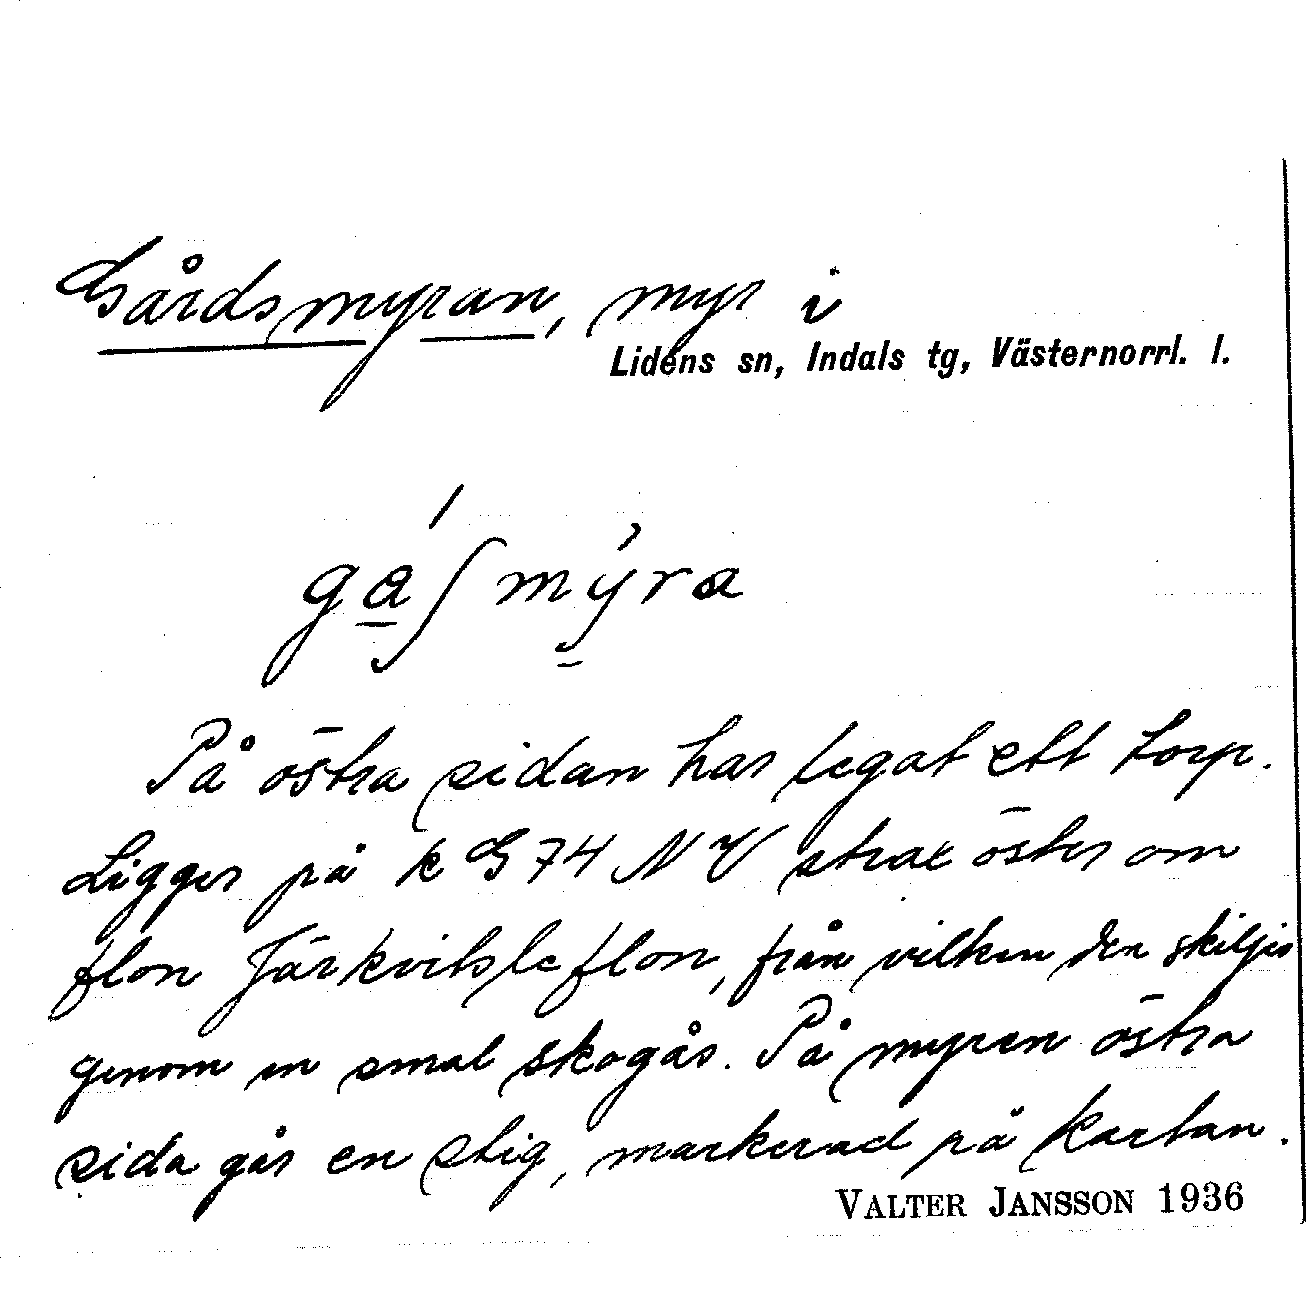 Gårdsmyran, myr i
Lidens sn, Indals tg, Västernorrl. l.
På östra sidan har legat ett torp.
Ligger på k G 74 NV strax öster om
flon Järkvitsleflon, från vilken den skiljes
genom en smal skogås. På myren östra
sida går en stig, markerad på kartan.
VALTER JANSSON 1936